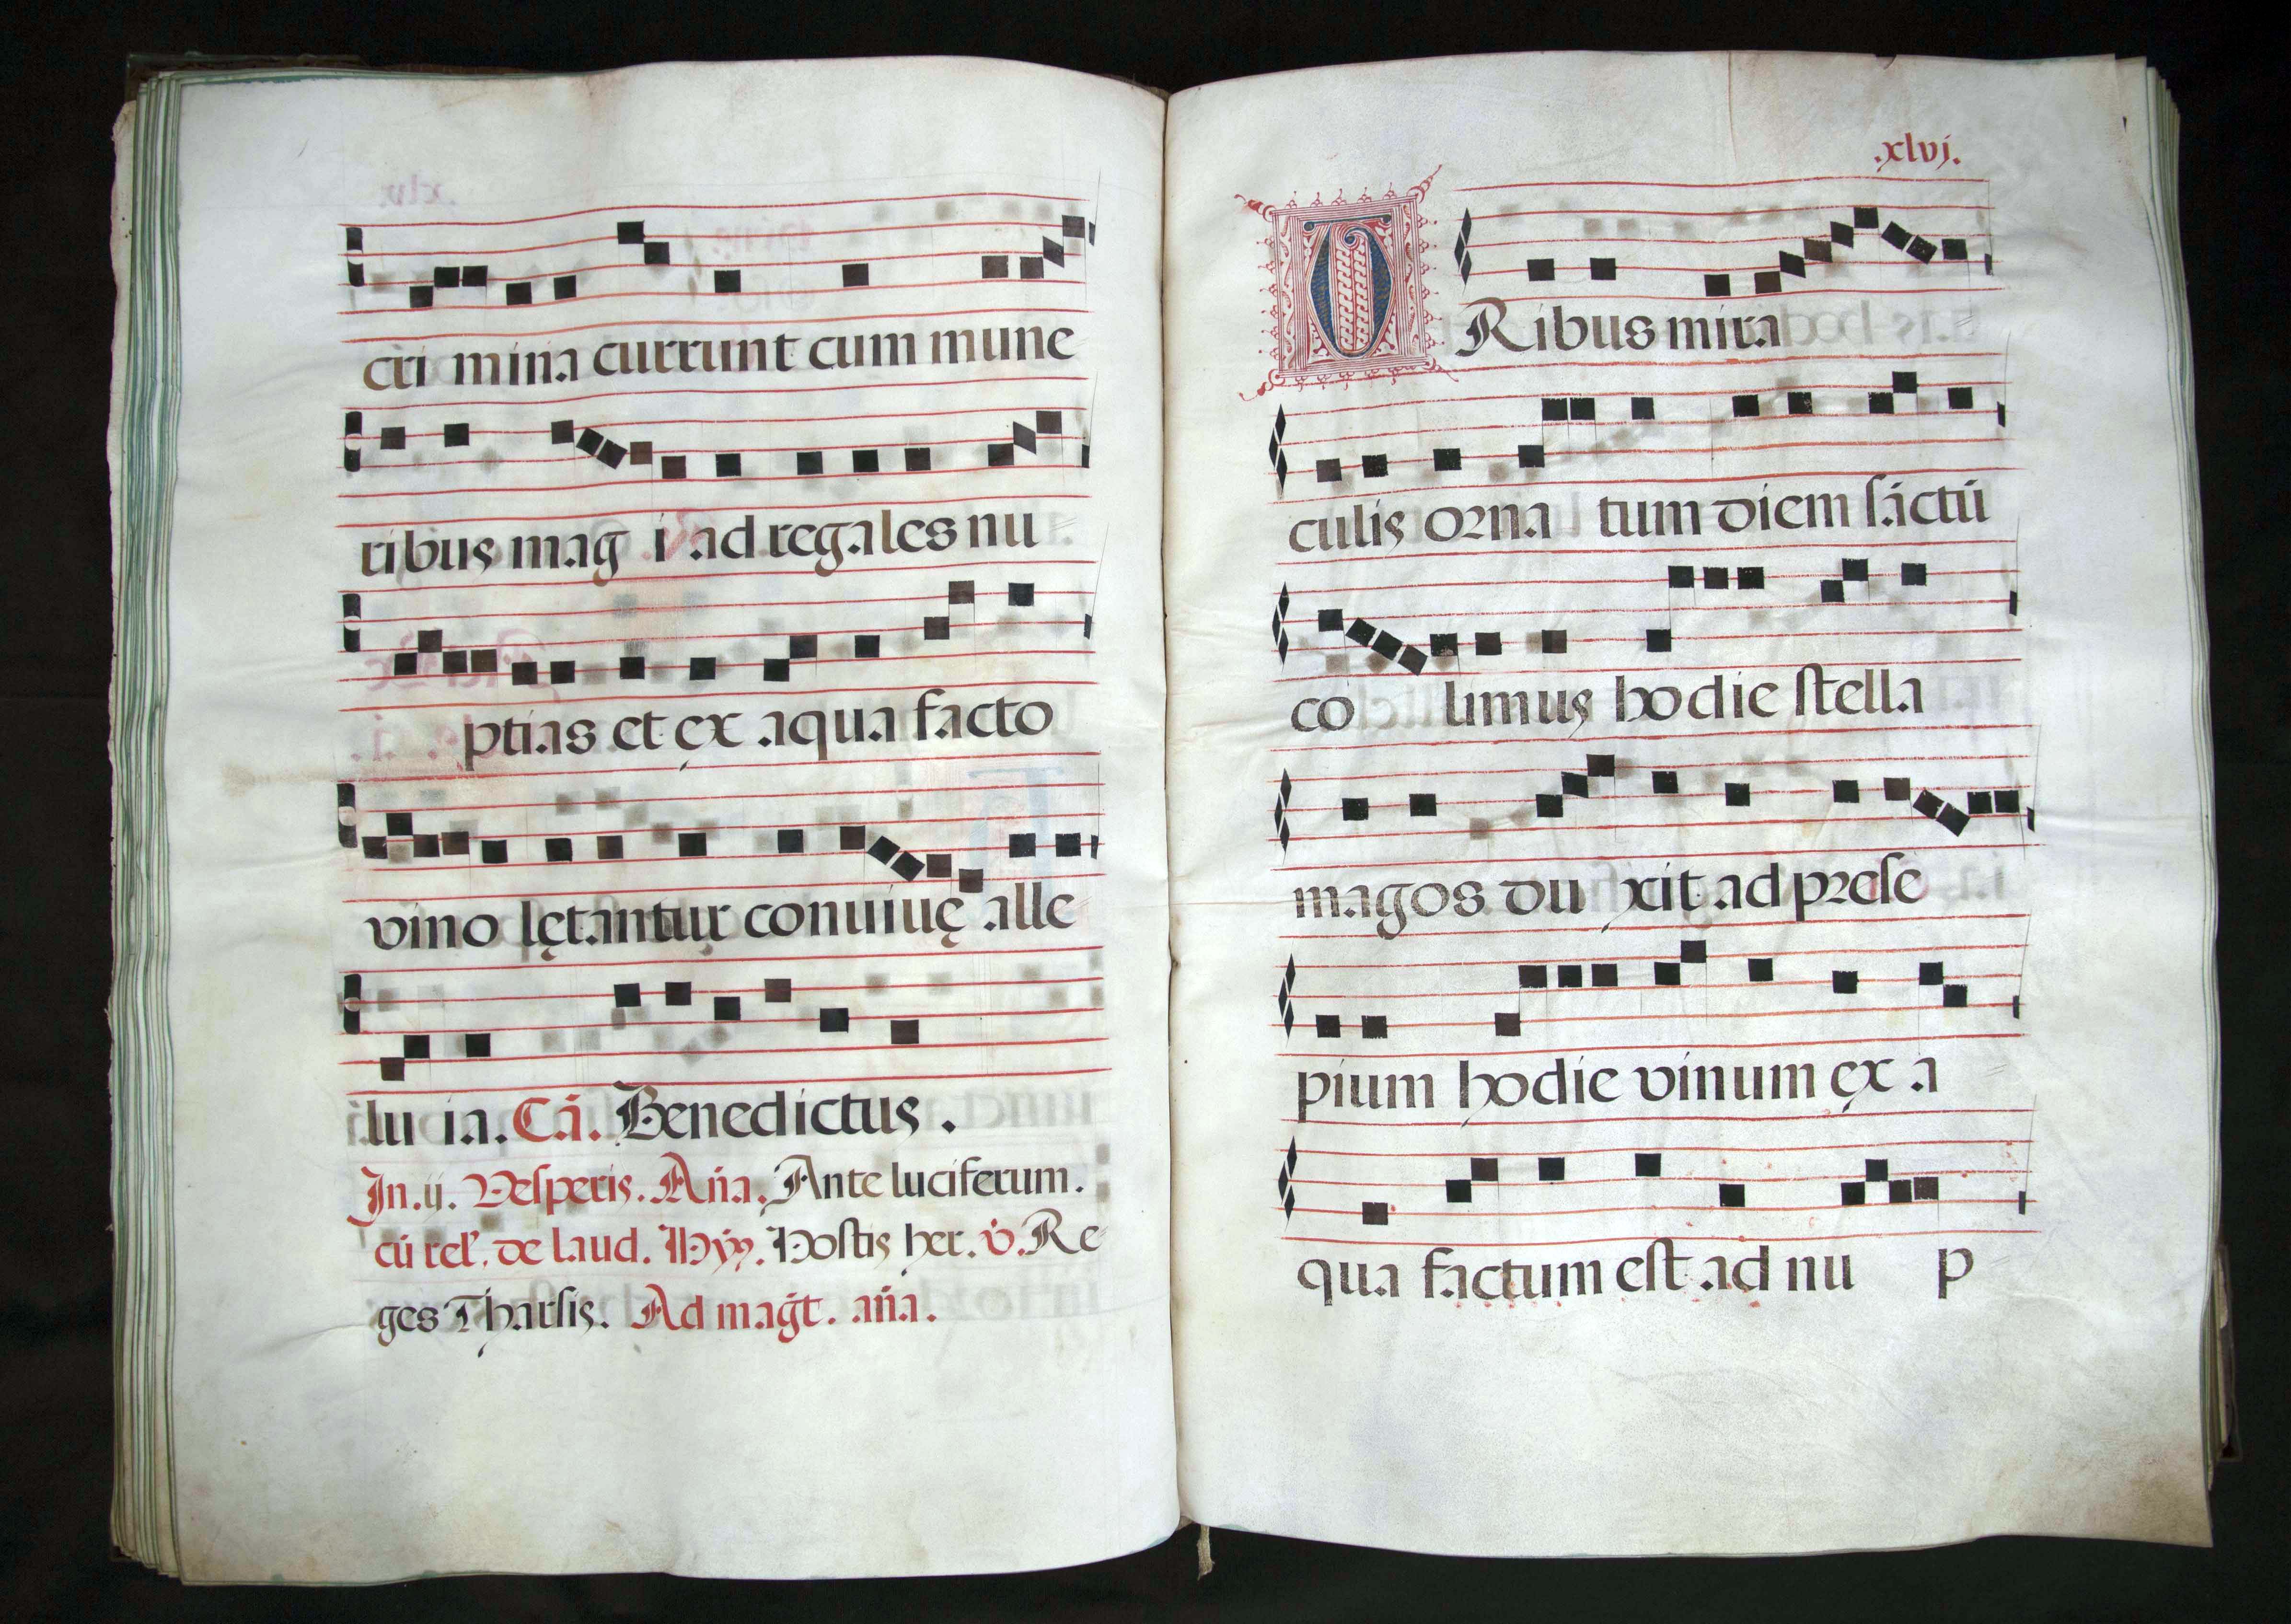 cri mina currunt cum mune
ribus mag i ad regales nu
ptias et ex aqua facto
vino lętantur conuiuę alle
lu ia. Cā. Benedictus.
In .ij. Vesperis. Aña. Ante luciferum.
cū rel'. de laud. Hyṃ. Hostis her. ℣. Re
ges Tharsis. Ad magt̄. aña.
.xlvj.
TRibus mira
culis orna tum diem sāctū
co limus hodie stella
magos du xit ad prese
pium hodie vinum ex a
qua factum est ad nu p